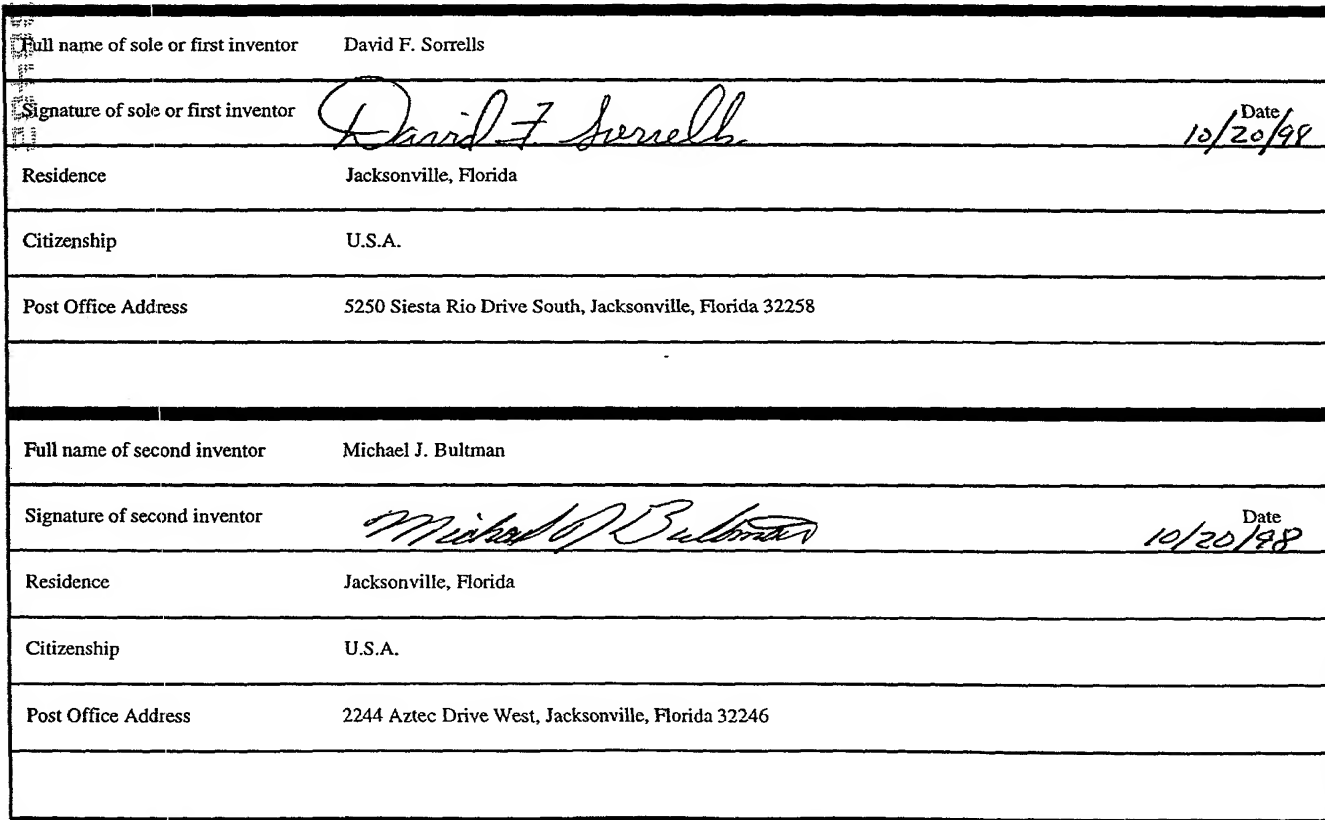 Full name of sole or first inventor David F. Sorrells
Signature of sole or first inventor David F. Sorrells Date 10/20/98
Residence Jacksonville, Florida
Citizenship U.S.A.
Post Office Address 5250 Siesta Rio Drive South, Jacksonville, Florida 32258
Full name of second inventor Michael J. Bultman
Signature of second inventor Michael J Bultman Date 10/20/98
Residence Jacksonville, Florida
Citizenship U.S.A.
Post Office Address 2244 Aztec Drive West, Jacksonville, Florida 32246